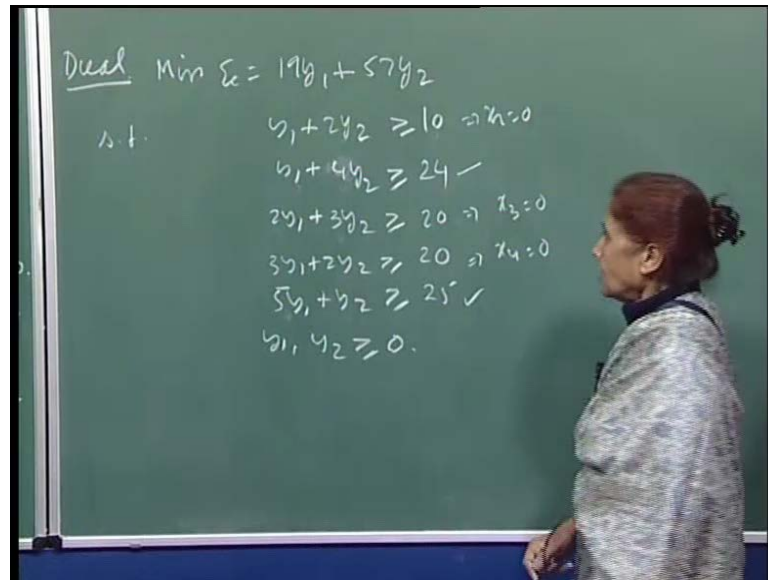 Dual Min Σ = 19y₁ + 57y₂
s.t. y₁ + 2y₂ ≥ 10 ⇒ x₁=0
y₁ + 4y₂ ≥ 24 ✓
2y₁ + 3y₂ ≥ 20 ⇒ x₃=0
3y₁ + 2y₂ ≥ 20 ⇒ x₄=0
5y₁ + y₂ ≥ 25 ✓
y₁, y₂ ≥ 0.